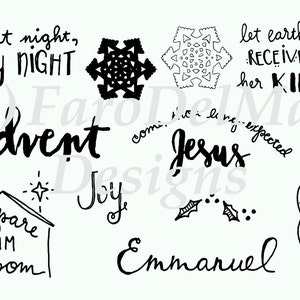 t night,
y NIGHT
let earth
RECEIVE
her KIN
© FaroDelMar
Designs
Advent
come, thou long-expected
Jesus
Joy
pare
IM
oom
Emmanuel